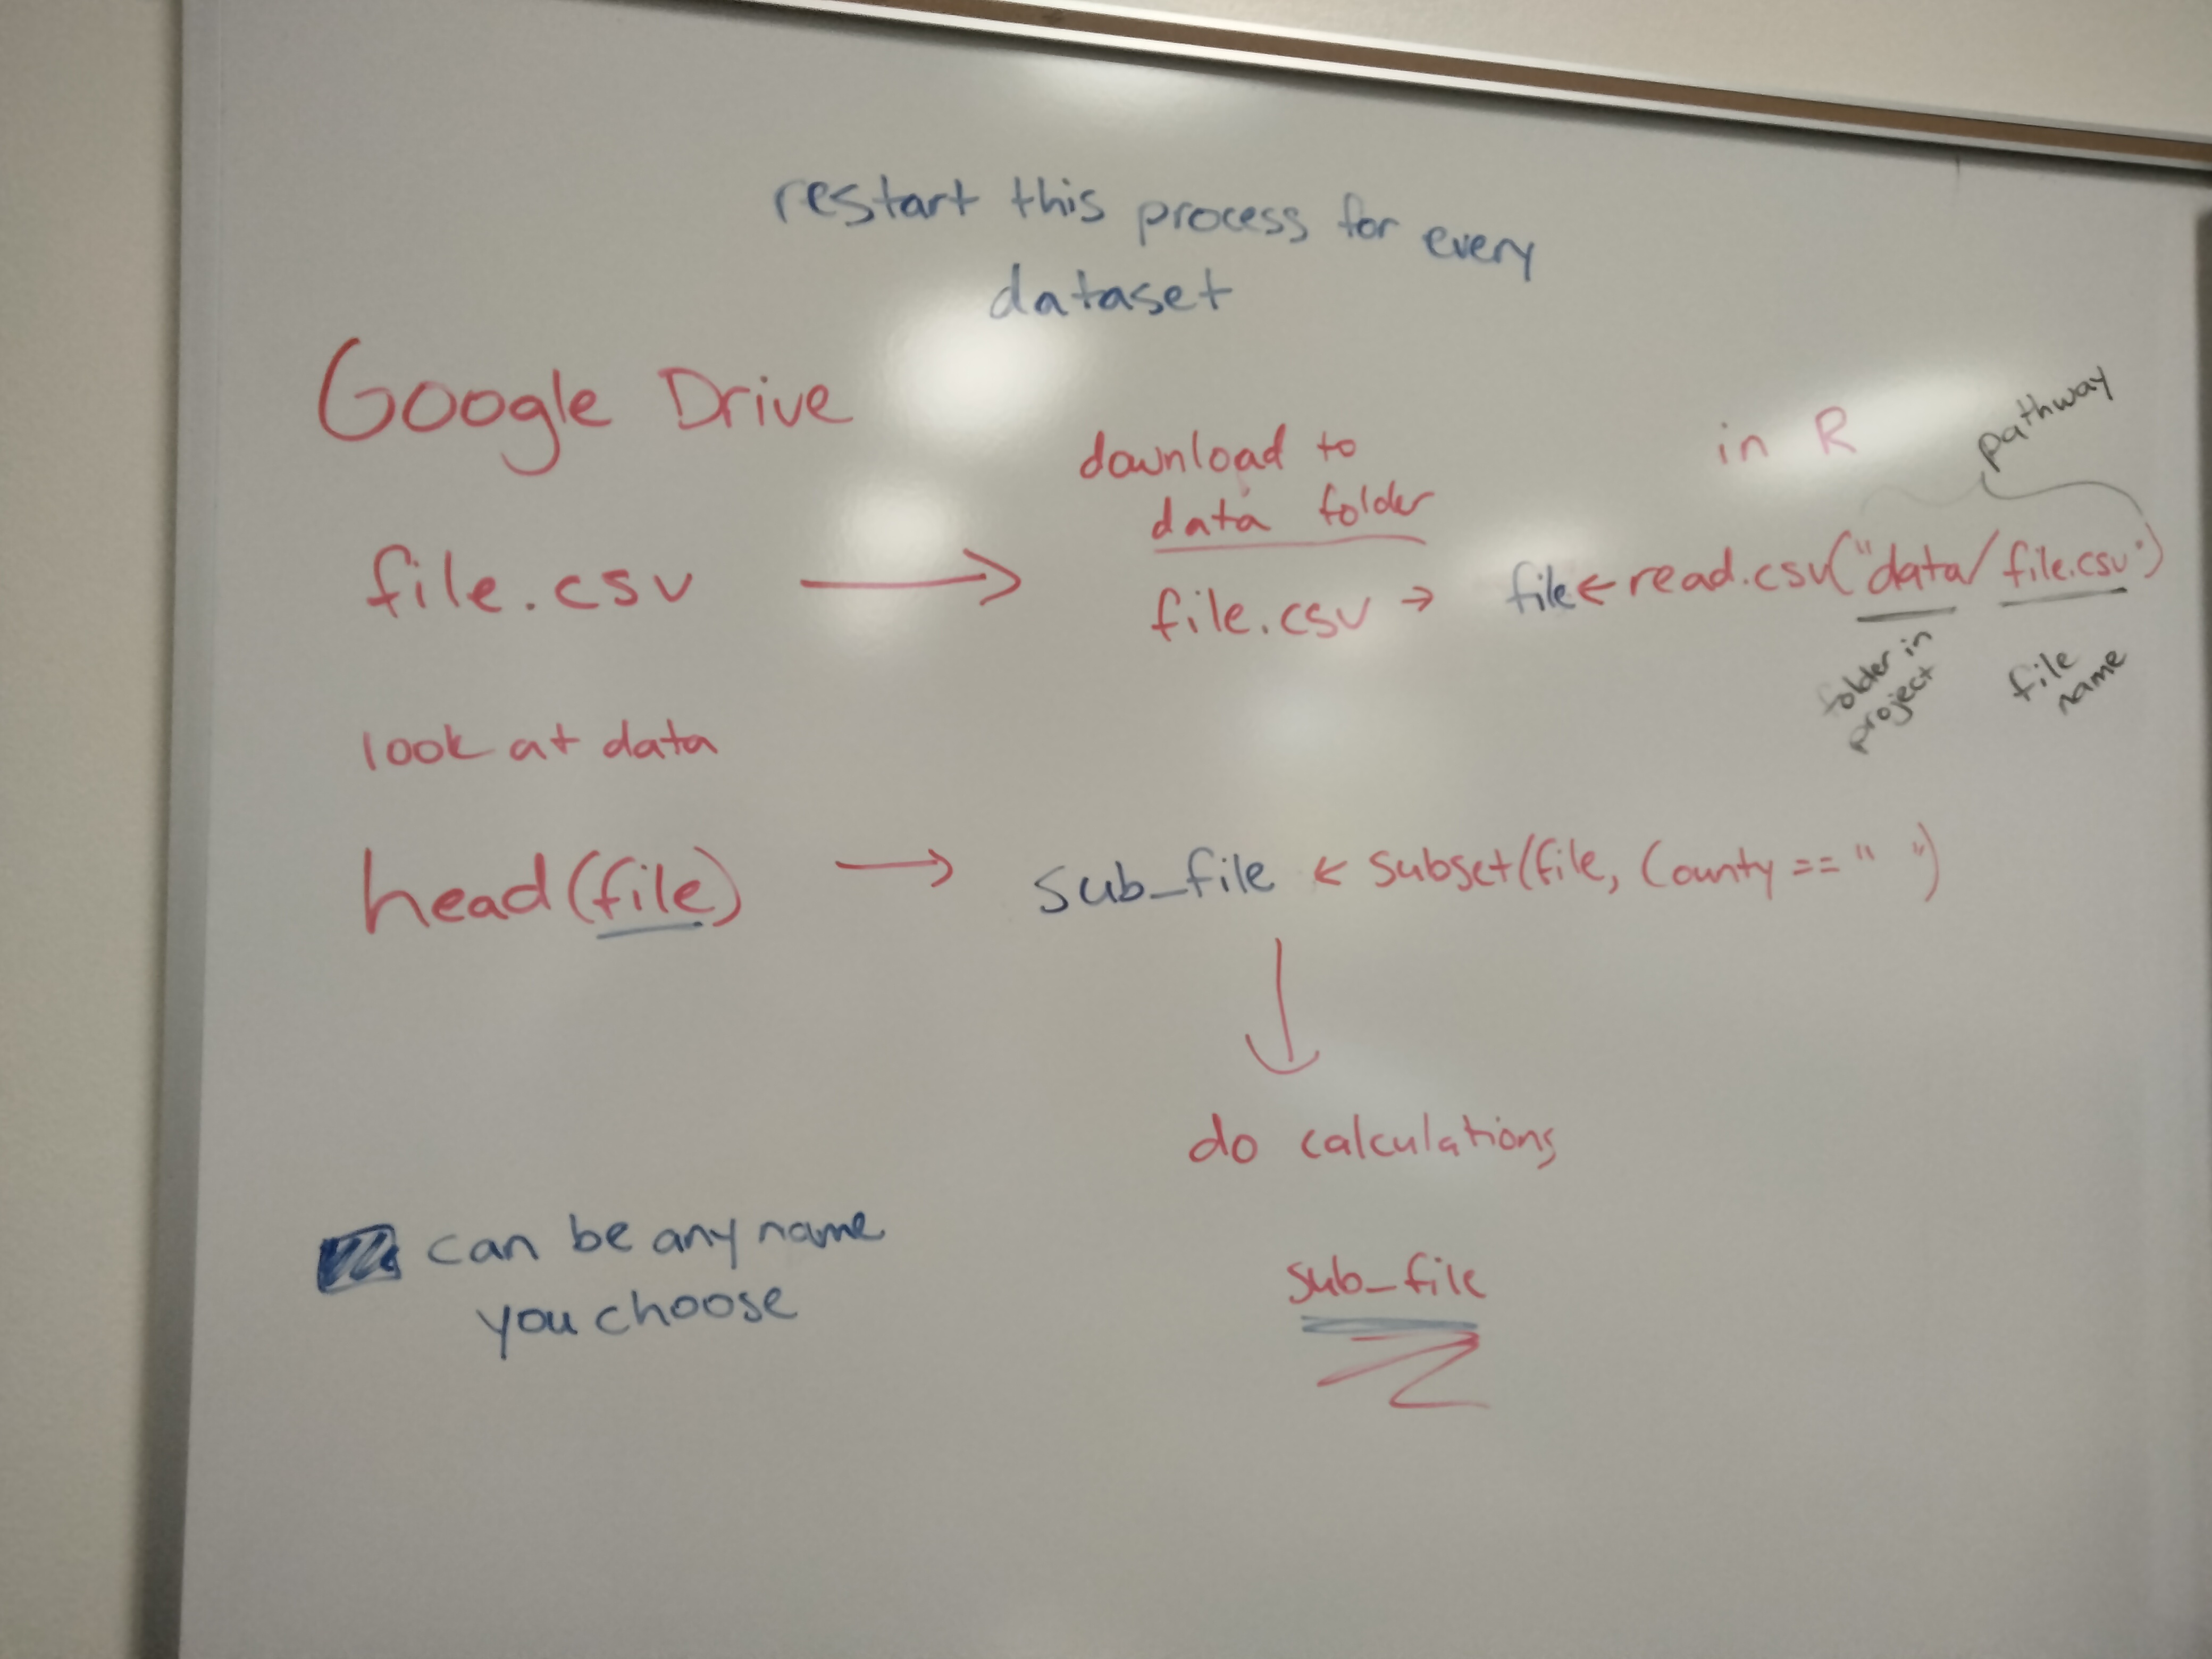 restart this process for every
dataset
Google Drive
download to
data folder
in R
pathway
file.csv → file.csv → file ← read.csv("data/file.csv")
folder in
project
file
name
look at data
head(file) → sub_file ← subset(file, County == " ")
↓
do calculations
sub_file
can be any name
you choose